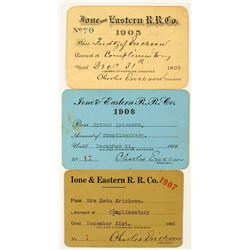 Ione and Eastern R.R.Co.
No 70 1905
Pass
Account of Complimentary
Until Dec 31st 1905
UNLESS OTHERWISE ORDERED
Charles Erickson
Ione & Eastern R.R. Co.
1906
Pass Erickson,
Account of Complimentary,
Until December 31, 1906
UNLESS OTHERWISE ORDERED
No. 17 Charles Erickson
Ione & Eastern R. R. Co. 1907
Pass Mrs Erickson,
Account of Complimentary
Until December 31st. 190
UNLESS OTHERWISE ORDERED
No. 7 Charles Erickson